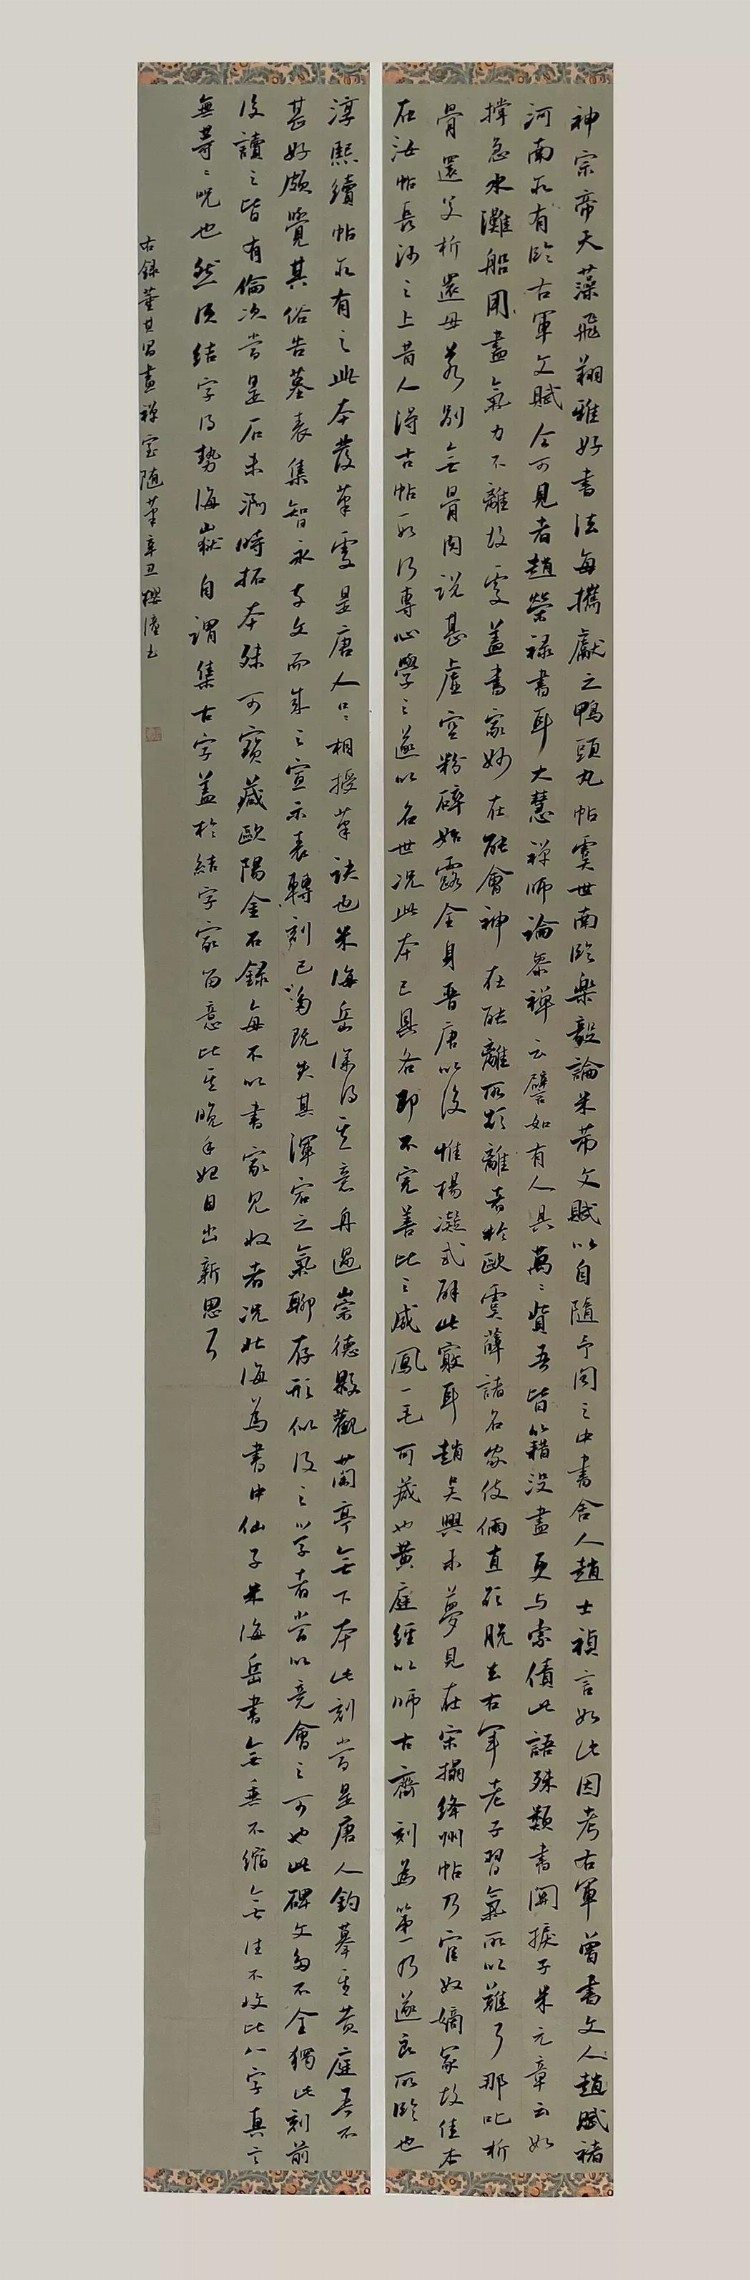 神宗帝天藻飛翔雅好書法每攜獻之鴨頭丸帖虞世南臨樂毅論米芾文賦以自隨予聞之中書舍人趙士禎言如此因考右軍曾書文人趙賦褚
河南所有臨右軍文賦今可見者趙榮祿書耳大慧禪師論參禪云譬如有人具萬萬貲吾皆籍沒盡更与索債此語殊類書關捩子米元章云如
撐急水灘船用盡氣力不離故處蓋書家妙在能會神在能離所欲離者於歐虞薛諸名家伎倆直欲脫去右軍老子習氣所以難了那叱析
骨還父析肉還母若別無骨肉說甚虛空粉碎始露全身晉唐以後惟楊凝式解此竅耳趙吳興未夢見在宋搨絳州帖乃官奴嫡冢故佳本
在汝帖長沙之上昔人得古帖數行專心學之遂以名世況此本已具各即不完善比之威鳳一毛可藏也黃庭經以師古齋刻為第一乃遂良所臨也
淳熙續帖所有之此本發筆處是唐人口口相授筆訣也米海岳深得其意舟過崇德縣觀蘭亭無下本此刻當是唐人鉤摹其黃庭吾不
甚好頗覺其俗告墓表集智永千文而成之宣示表轉刻已多既失其渾宕之氣聊存形似後之學者當以意會之可也此碑文多不全獨此刻前
後讀之皆有倫次當是石未泐時拓本殊可寶藏歐陽金石錄每不以書家見收者況北海為書中仙手米海岳書無垂不縮無往不收此八字真言
無等等呪也然須結字得勢海嶽自謂集古字蓋於結字最留意比其晚年始自出新思了
右錄董其昌畫禪室隨筆辛丑櫻